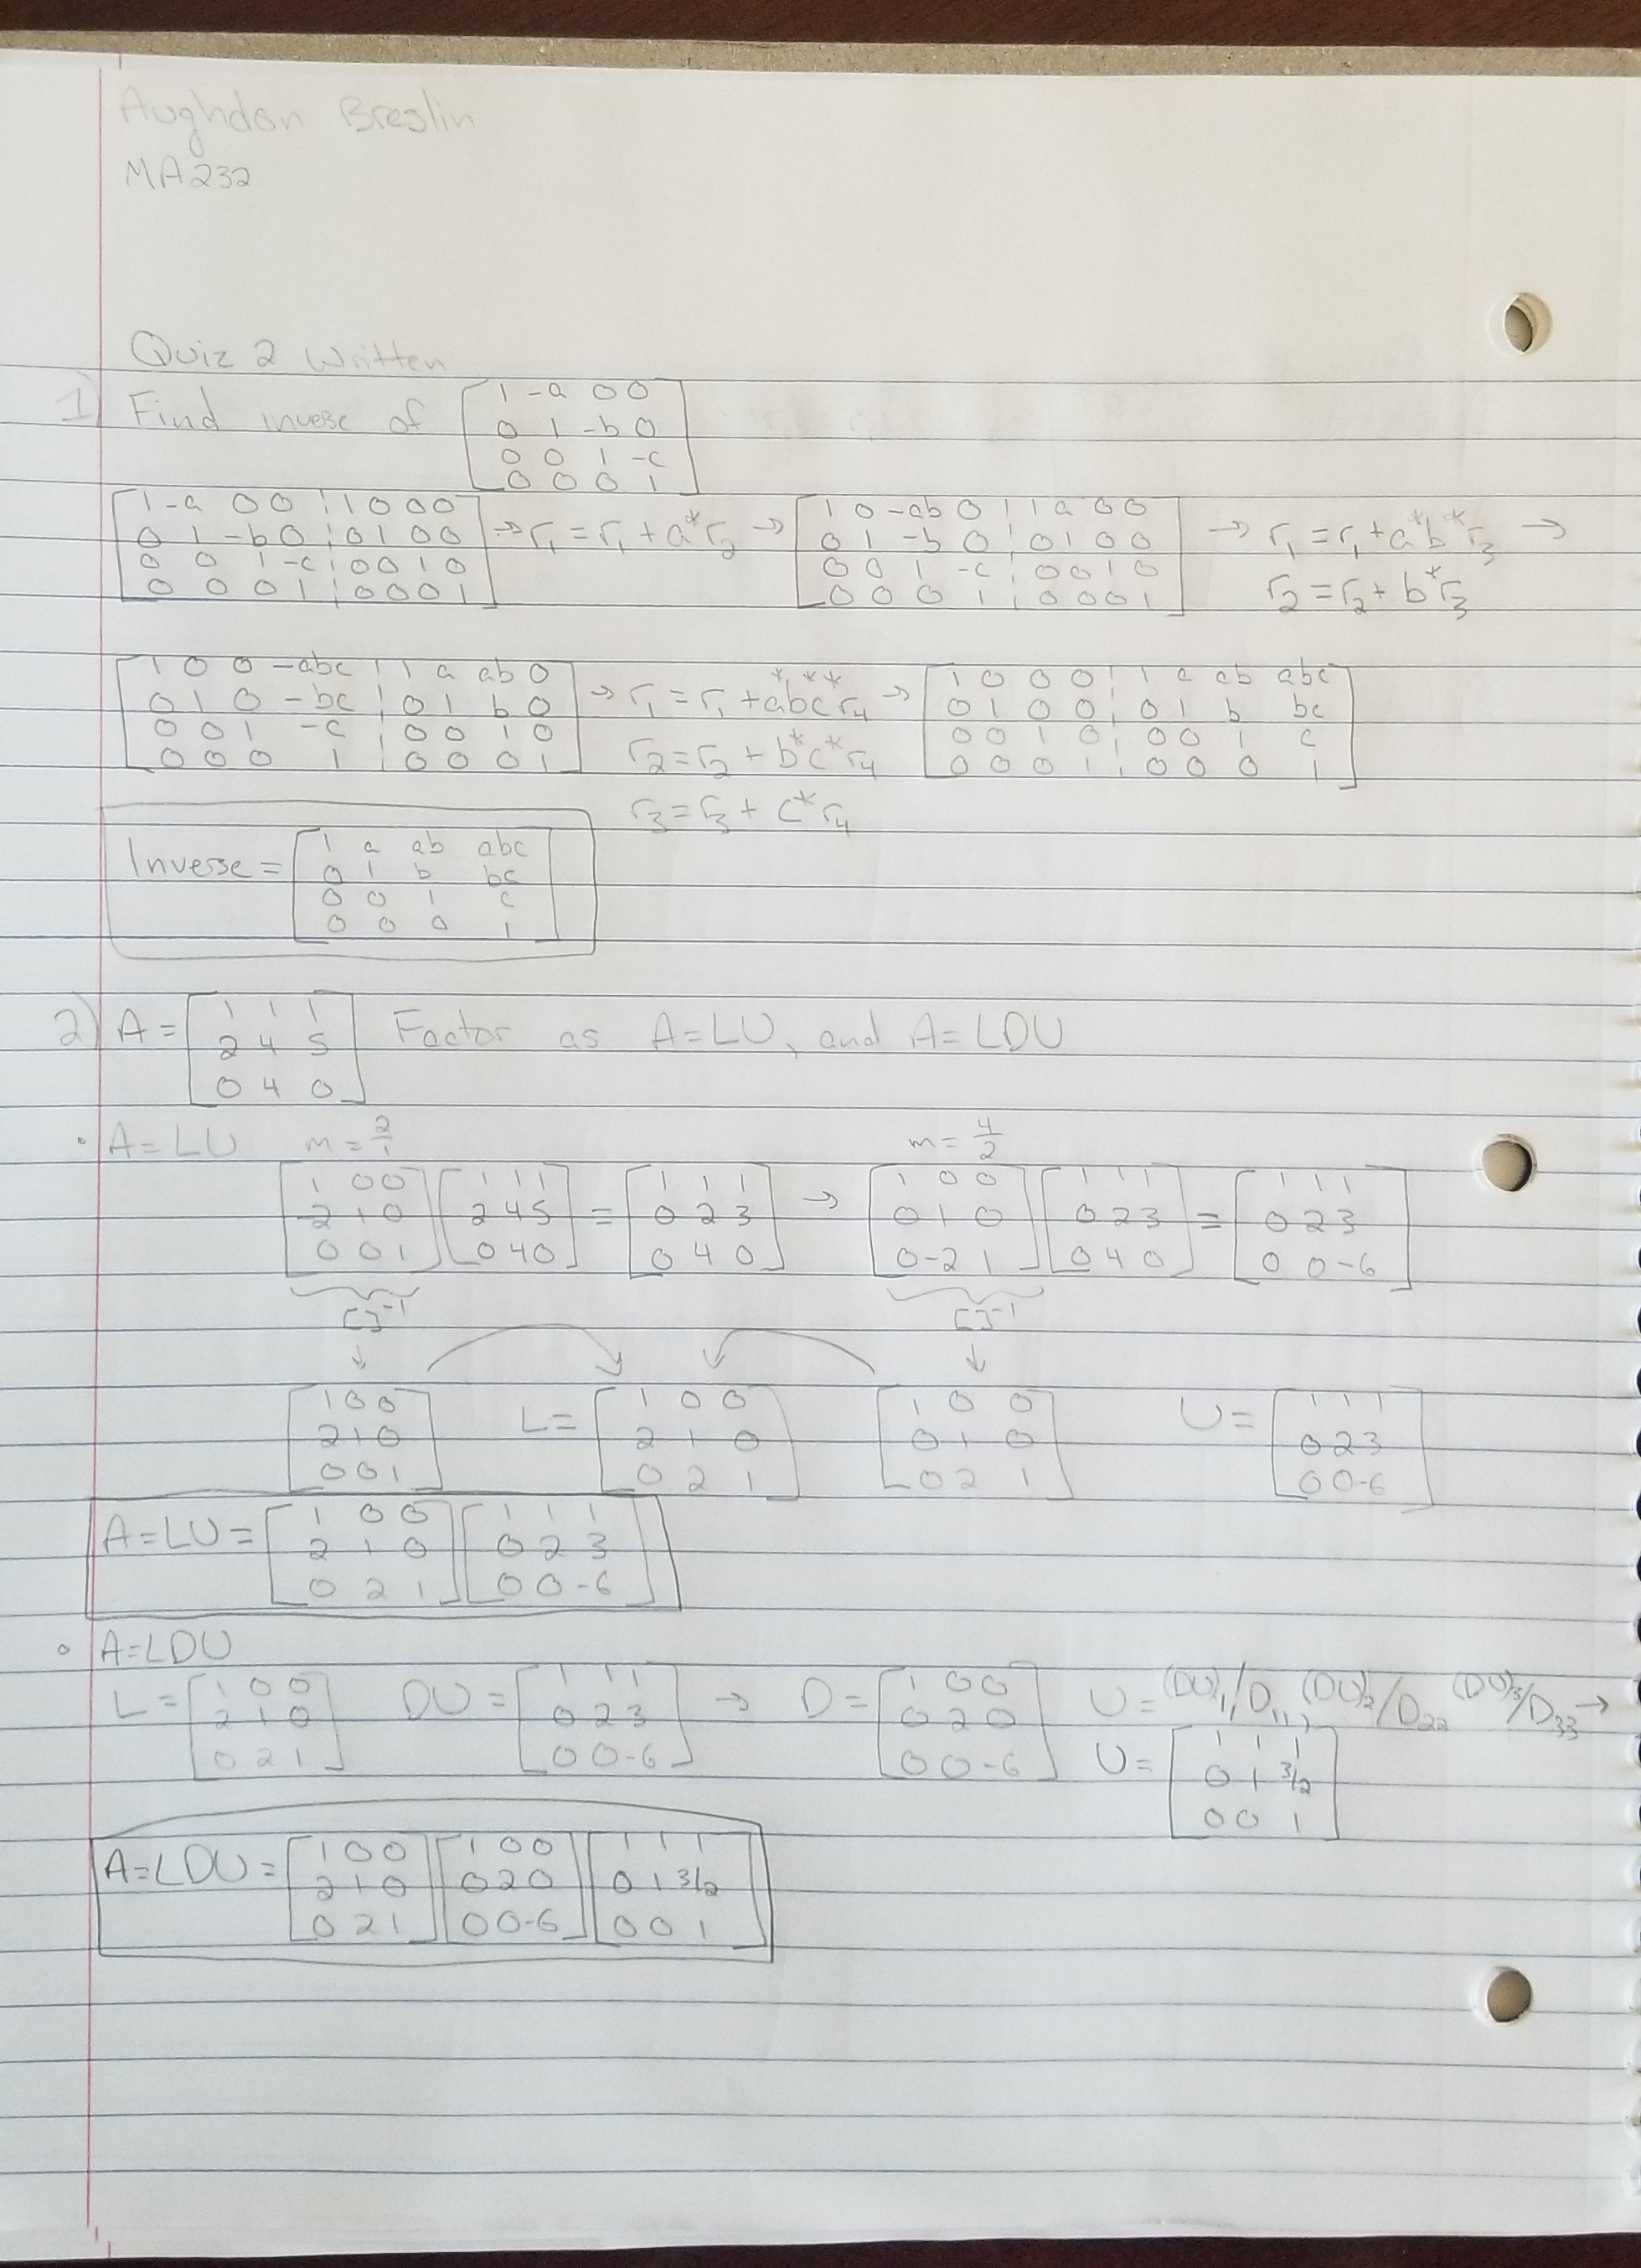 Aughdon Breslin
MA232
Quiz 2 Written
1) Find inverse of [1 -a 0 0
0 1 -b 0
0 0 1 -c
0 0 0 1]
[1 -a 0 0 ¦ 1 0 0 0
0 1 -b 0 ¦ 0 1 0 0
0 0 1 -c ¦ 0 0 1 0
0 0 0 1 ¦ 0 0 0 1]
→ r₁ = r₁ + a*r₂ →
[1 0 -ab 0 ¦ 1 a 0 0
0 1 -b 0 ¦ 0 1 0 0
0 0 1 -c ¦ 0 0 1 0
0 0 0 1 ¦ 0 0 0 1]
→ r₁ = r₁ + a*b*r₃ →
r₂ = r₂ + b*r₃
[1 0 0 -abc ¦ 1 a ab 0
0 1 0 -bc ¦ 0 1 b 0
0 0 1 -c ¦ 0 0 1 0
0 0 0 1 ¦ 0 0 0 1]
→ r₁ = r₁ + a*b*c*r₄ →
r₂ = r₂ + b*c*r₄
r₃ = r₃ + c*r₄
[1 0 0 0 ¦ 1 a ab abc
0 1 0 0 ¦ 0 1 b bc
0 0 1 0 ¦ 0 0 1 c
0 0 0 1 ¦ 0 0 0 1]
Inverse = [1 a ab abc
0 1 b bc
0 0 1 c
0 0 0 1]
2) A = [1 1 1
2 4 5
0 4 0] Factor as A=LU, and A=LDU
• A=LU m = 2/1 m = 4/2
[1 0 0
-2 1 0
0 0 1]
[1 1 1
2 4 5
0 4 0]
= [1 1 1
0 2 3
0 4 0]
→ [1 0 0
0 1 0
0 -2 1]
[1 1 1
0 2 3
0 4 0]
= [1 1 1
0 2 3
0 0 -6]
[]⁻¹ []⁻¹
↓ ↓
[1 0 0
2 1 0
0 0 1]
L = [1 0 0
2 1 0
0 2 1]
[1 0 0
0 1 0
0 2 1]
U = [1 1 1
0 2 3
0 0 -6]
A=LU= [1 0 0
2 1 0
0 2 1]
[1 1 1
0 2 3
0 0 -6]
• A=LDU
L = [1 0 0
2 1 0
0 2 1]
DU = [1 1 1
0 2 3
0 0 -6]
→ D = [1 0 0
0 2 0
0 0 -6]
U = (DU)₁/D₁₁, (DU)₂/D₂₂ (DU)₃/D₃₃ →
U = [1 1 1
0 1 3/2
0 0 1]
A=LDU= [1 0 0
2 1 0
0 2 1]
[1 0 0
0 2 0
0 0 -6]
[1 1 1
0 1 3/2
0 0 1]